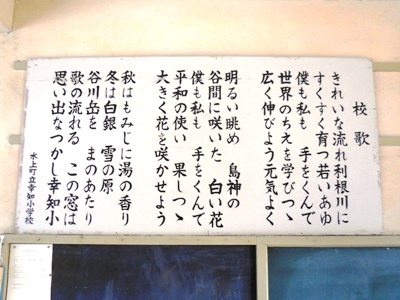 校歌
きれいな流れ利根川に
すくすく育つ若いあゆ
僕も私も 手をくんで
世界のちえを学びつゝ
広く伸びよう元気よく
明るい眺め 島神の
谷間に咲いた 白い花
僕も私も 手をくんで
平和の使い 果しつゝ
大きく花を咲かせよう
秋はもみじに湯の香り
冬は白銀 雪の原
谷川岳を まのあたり
歌の流れる この窓は
思い出なつかし幸知小
水上町立幸知小学校